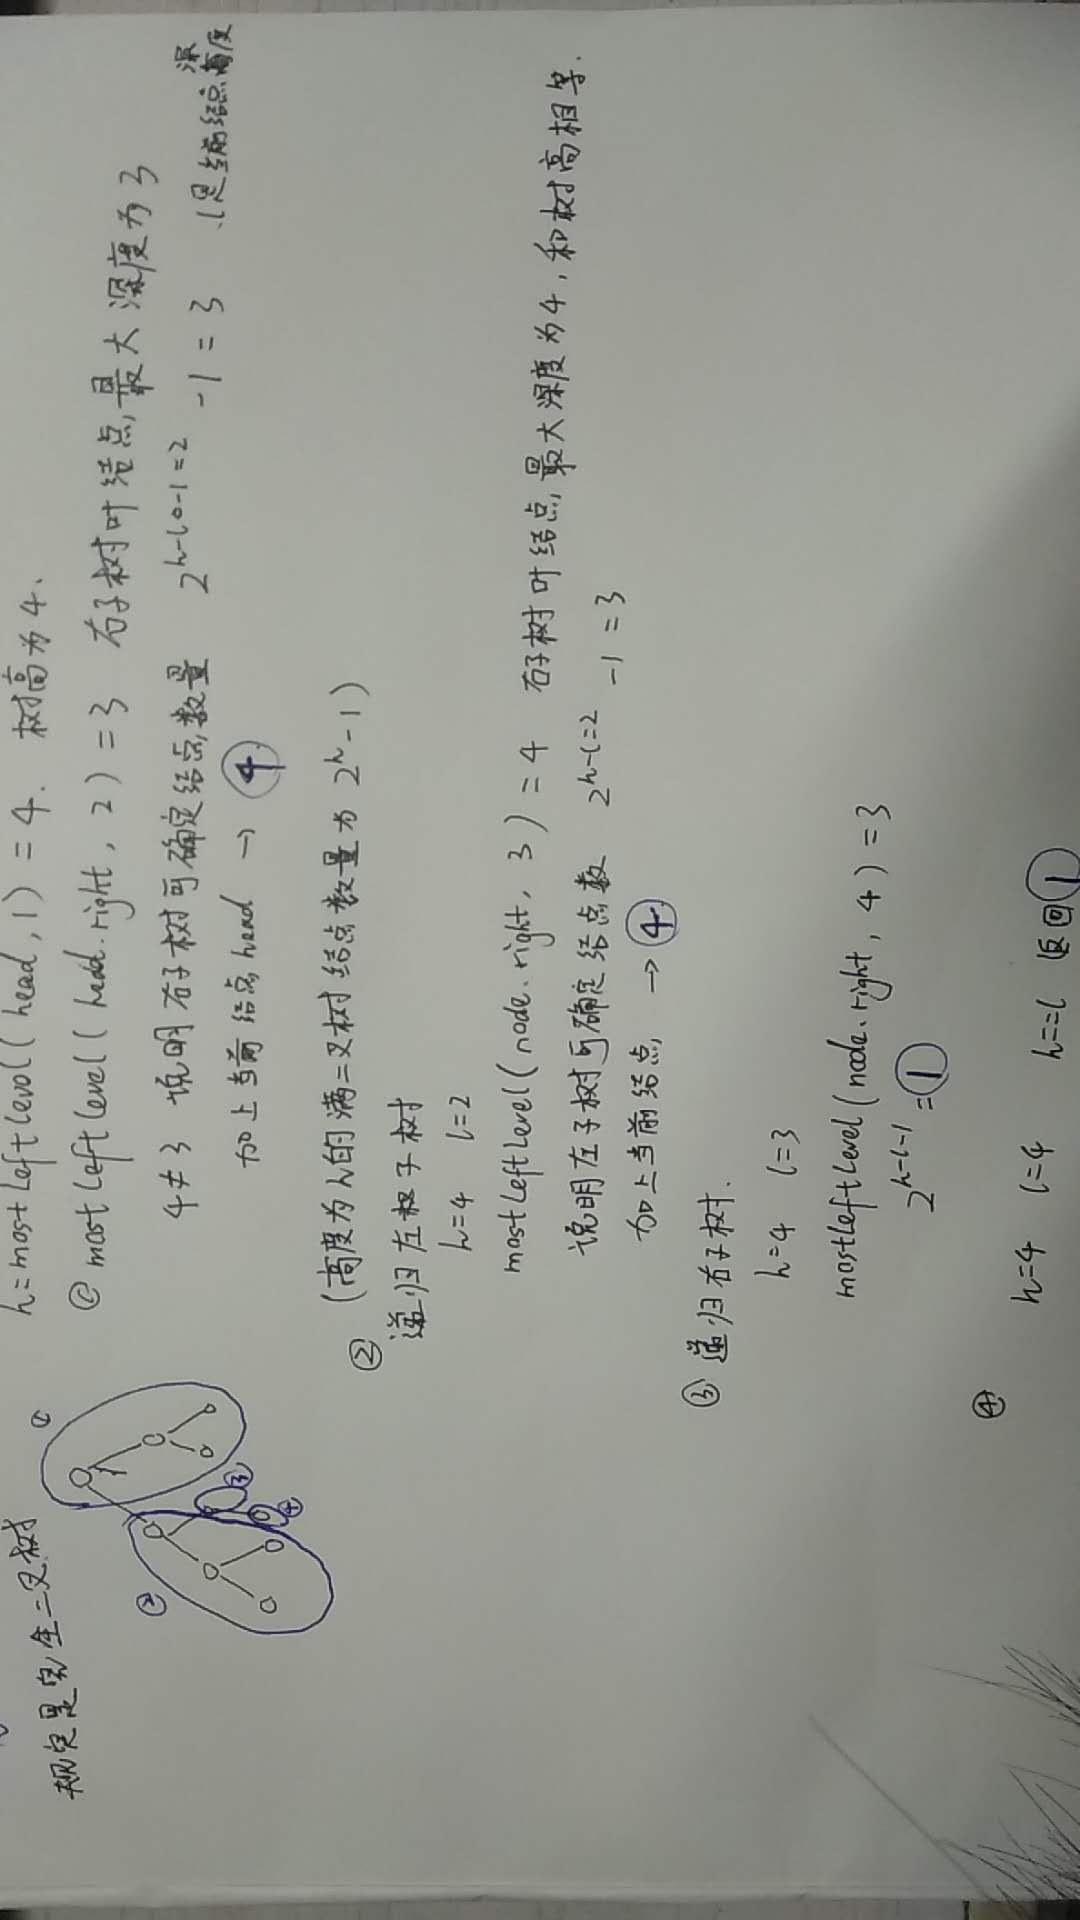 规定是完全二叉树
①
②
③
④
h=mostleftlevel(head,1)=4. 树高为4、
① mostleftlevel(head.right,2)=3 右子树叶结点,最大深度为3
4≠3 说明右子树可确定结点数量 2^h-l0-1=2 -1=3
加上当前结点head → ④
(高度为h的满二叉树结点数量为2^h-1)
②
递归左子树
h=4 l=2
mostleftlevel(node.right,3)=4 右子树叶结点,最大深度为4,和树高相等.
说明左子树可确定结点数 2^h-l=2 -1=3
加上当前结点 → ④
③ 递归右子树.
h=4 l=3
mostleftlevel(node.right,4)=3
2^h-l-1=①
④
h=4 l=4 h==l 返回①